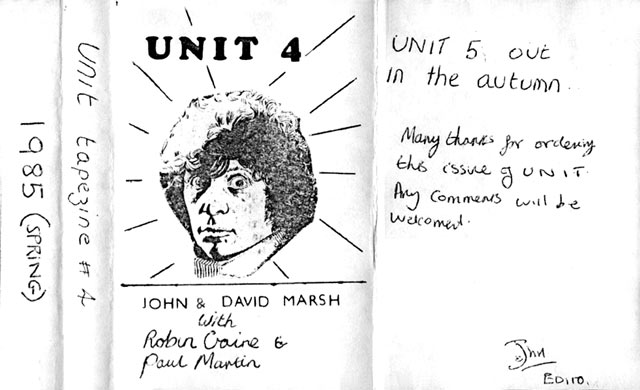 1985 (SPRING)
Unit tapezine # 4
UNIT 4
JOHN & DAVID MARSH
With
Robin Craine &
Paul Martin
UNIT 5 out
in the autumn.
Many thanks for ordering
this issue of UNIT.
Any comments will be
welcomed.
John
EDITO.